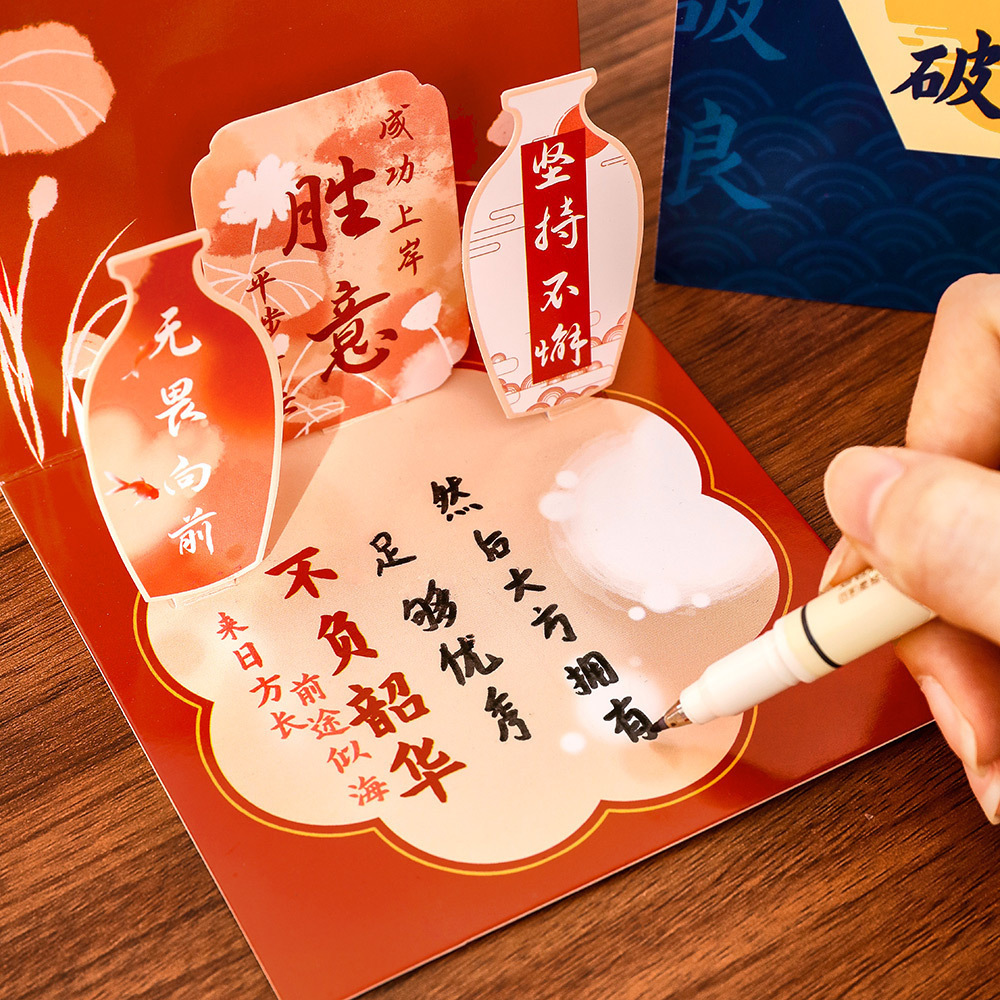 成功上岸
胜意
平步
无畏向前
坚持不懈
破
良
破
然后大方拥有
足够优秀
不负韶华
前途似海
来日方长